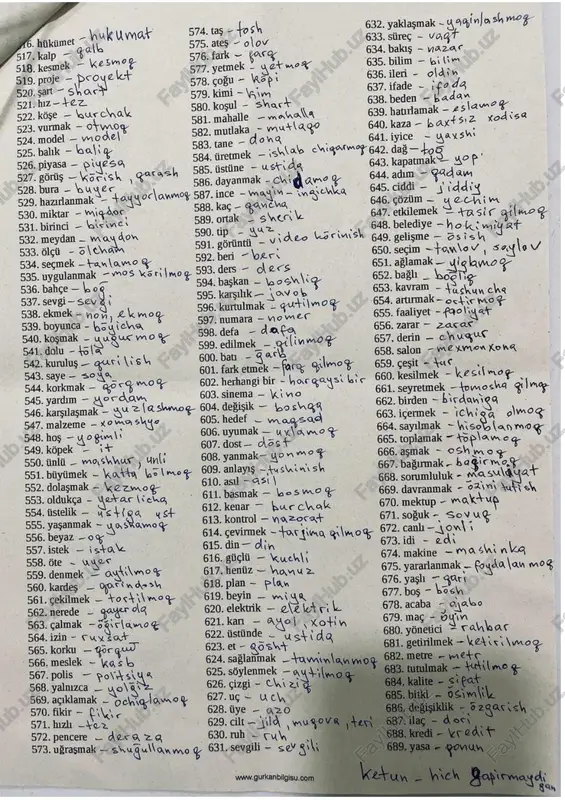 516. hükümet - hukumat
517. kalp - qalb
518. kesmek - kesmoq
519. proje - proyekt
520. şart - shart
521. hız - tez
522. köşe - burchak
523. vurmak - otmoq
524. model - model
525. balık - baliq
526. piyasa - piyesa
527. görüş - körish, qarash
528. bura - buyer
529. hazırlanmak - tayyorlanmoq
530. miktar - miqdor
531. birinci - birinci
532. meydan - maydon
533. ölçü - ölcham
534. seçmek - tanlamoq
535. uygulanmak - mos körilmoq
536. bahçe - bog
537. sevgi - sevgi
538. ekmek - non, ekmoq
539. boyunca - böyicha
540. koşmak - yugurmoq
541. dolu - töla
542. kuruluş - qurilish
543. saye - soya
544. korkmak - qörqmoq
545. yardım - yordam
546. karşılaşmak - yuzlashmoq
547. malzeme - xomashyo
548. hoş - yoqimli
549. köpek - it
550. ünlü - mashhur, unli
551. büyümek - katta bölmoq
552. dolaşmak - kezmoq
553. oldukça - yetarlicha
554. üstelik - ustiga ust
555. yaşanmak - yashamoq
556. beyaz - oq
557. istek - istak
558. öte - uyer
559. denmek - aytilmoq
560. kardeş - qarindosh
561. çekilmek - tortilmoq
562. nerede - qayerda
563. çalmak - ögirlamoq
564. izin - ruxsat
565. korku - qörquv
566. meslek - kasb
567. polis - politsiya
568. yalnızca - yolgiz
569. açıklamak - ochiqlamoq
570. fikir - fikir
571. hızlı - tez
572. pencere - deraza
573. uğraşmak - shuğullanmoq
574. taş - tosh
575. ateş - olov
576. fark - farq
577. yetmek - yetmoq
578. çoğu - köpi
579. kimi - kim
580. koşul - shart
581. mahalle - mahalla
582. mutlaka - mutlaqo
583. tane - dona
584. üretmek - ishlab chiqarmoq
585. üstüne - ustida
586. dayanmak - chidamoq
587. ince - mayin - ingichka
588. kaç - qancha
589. ortak - sherik
590. tip - yuz
591. görüntü - video körinish
592. beri - beri
593. ders - ders
594. başkan - boshliq
595. karşılık - javob
596. kurtulmak - qutilmoq
597. numara - nomer
598. defa - dafa
599. edilmek - qilinmoq
600. batı - ğarb
601. fark etmek - farq qilmoq
602. herhangi bir - harqaysi bir
603. sinema - kino
604. değişik - boshqa
605. hedef - maqsad
606. uyumak - uxlamoq
607. dost - döst
608. yanmak - yonmoq
609. anlayış - tushinish
610. asıl - asil
611. basmak - bosmoq
612. kenar - burchak
613. kontrol - nazorat
614. çevirmek - tarjima qilmoq
615. din - din
616. güçlü - kuchli
617. henüz - hanuz
618. plan - plan
619. beyin - miya
620. elektrik - elektrik
621. karı - ayol, xotin
622. üstünde - ustida
623. et - gösht
624. sağlanmak - taminlanmoq
625. söylenmek - aytilmoq
626. çizgi - chiziq
627. uç - uch
628. üye - azo
629. cilt - jild, muqova, teri
630. ruh - ruh
631. sevgili - sevgili
632. yaklaşmak - yaqinlashmoq
633. süreç - vaqt
634. bakış - nazar
635. bilim - bilim
636. ileri - oldin
637. ifade - ifoda
638. beden - badan
639. hatırlamak - eslamoq
640. kaza - baxtsiz xodisa
641. iyice - yaxshi
642. dağ - tog
643. kapatmak - yop
644. adım - qadam
645. ciddi - jiddiy
646. çözüm - yechim
647. etkilemek - tasir qilmoq
648. belediye - hokimiyat
649. gelişme - ösish
650. seçim - tanlov, saylov
651. ağlamak - yiğlamoq
652. bağlı - boğliq
653. kavram - tushuncha
654. artırmak - ortirmoq
655. faaliyet - faoliyat
656. zarar - zarar
657. derin - chuqur
658. salon - mexmonxona
659. çeşit - tur
660. kesilmek - kesilmoq
661. seyretmek - tomosha qilmoq
662. birden - birdaniga
663. içermek - ichiga olmoq
664. sayılmak - hisoblanmoq
665. toplamak - töplamoq
666. aşmak - oshmoq
667. bağırmak - baqirmoq
668. sorumluluk - masuliyat
669. davranmak - özini tutish
670. mektup - maktup
671. soğuk - sovuq
672. canlı - jonli
673. idi - edi
674. makine - mashinka
675. yararlanmak - foydalanmoq
676. yaşlı - qari
677. boş - bösh
678. acaba - ajabo
679. maç - öyin
680. yönetici - rahbar
681. getirilmek - ketirilmoq
682. metre - metr
683. tutulmak - tutilmoq
684. kalite - sifat
685. bitki - ösimlik
686. değişiklik - özgarish
687. ilaç - dori
688. kredi - kredit
689. yasa - qonun
ketun - hich gapirmaydigan
www.gurkanbilgisu.com
FaylHub.uz